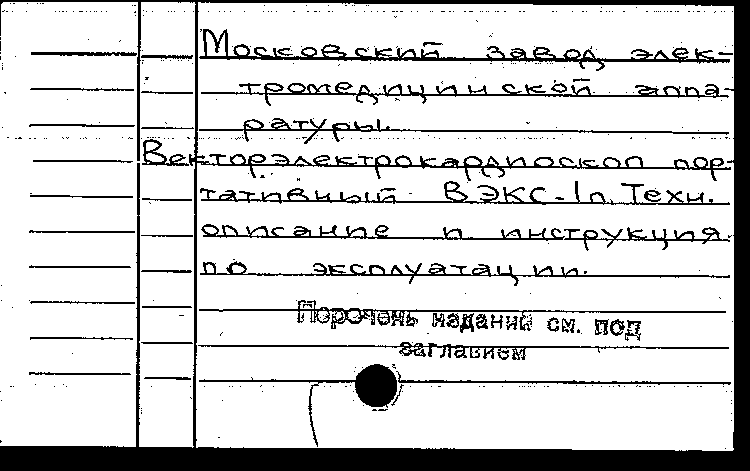 Московский завод элек-
тромедицинской аппа-
ратуры.
Векторэлектрокардиоскоп пор-
тативный ВЭКС-1п. Техн.
описание и инструкция
по эксплуатации.
Перечень изданий см. под
заглавием